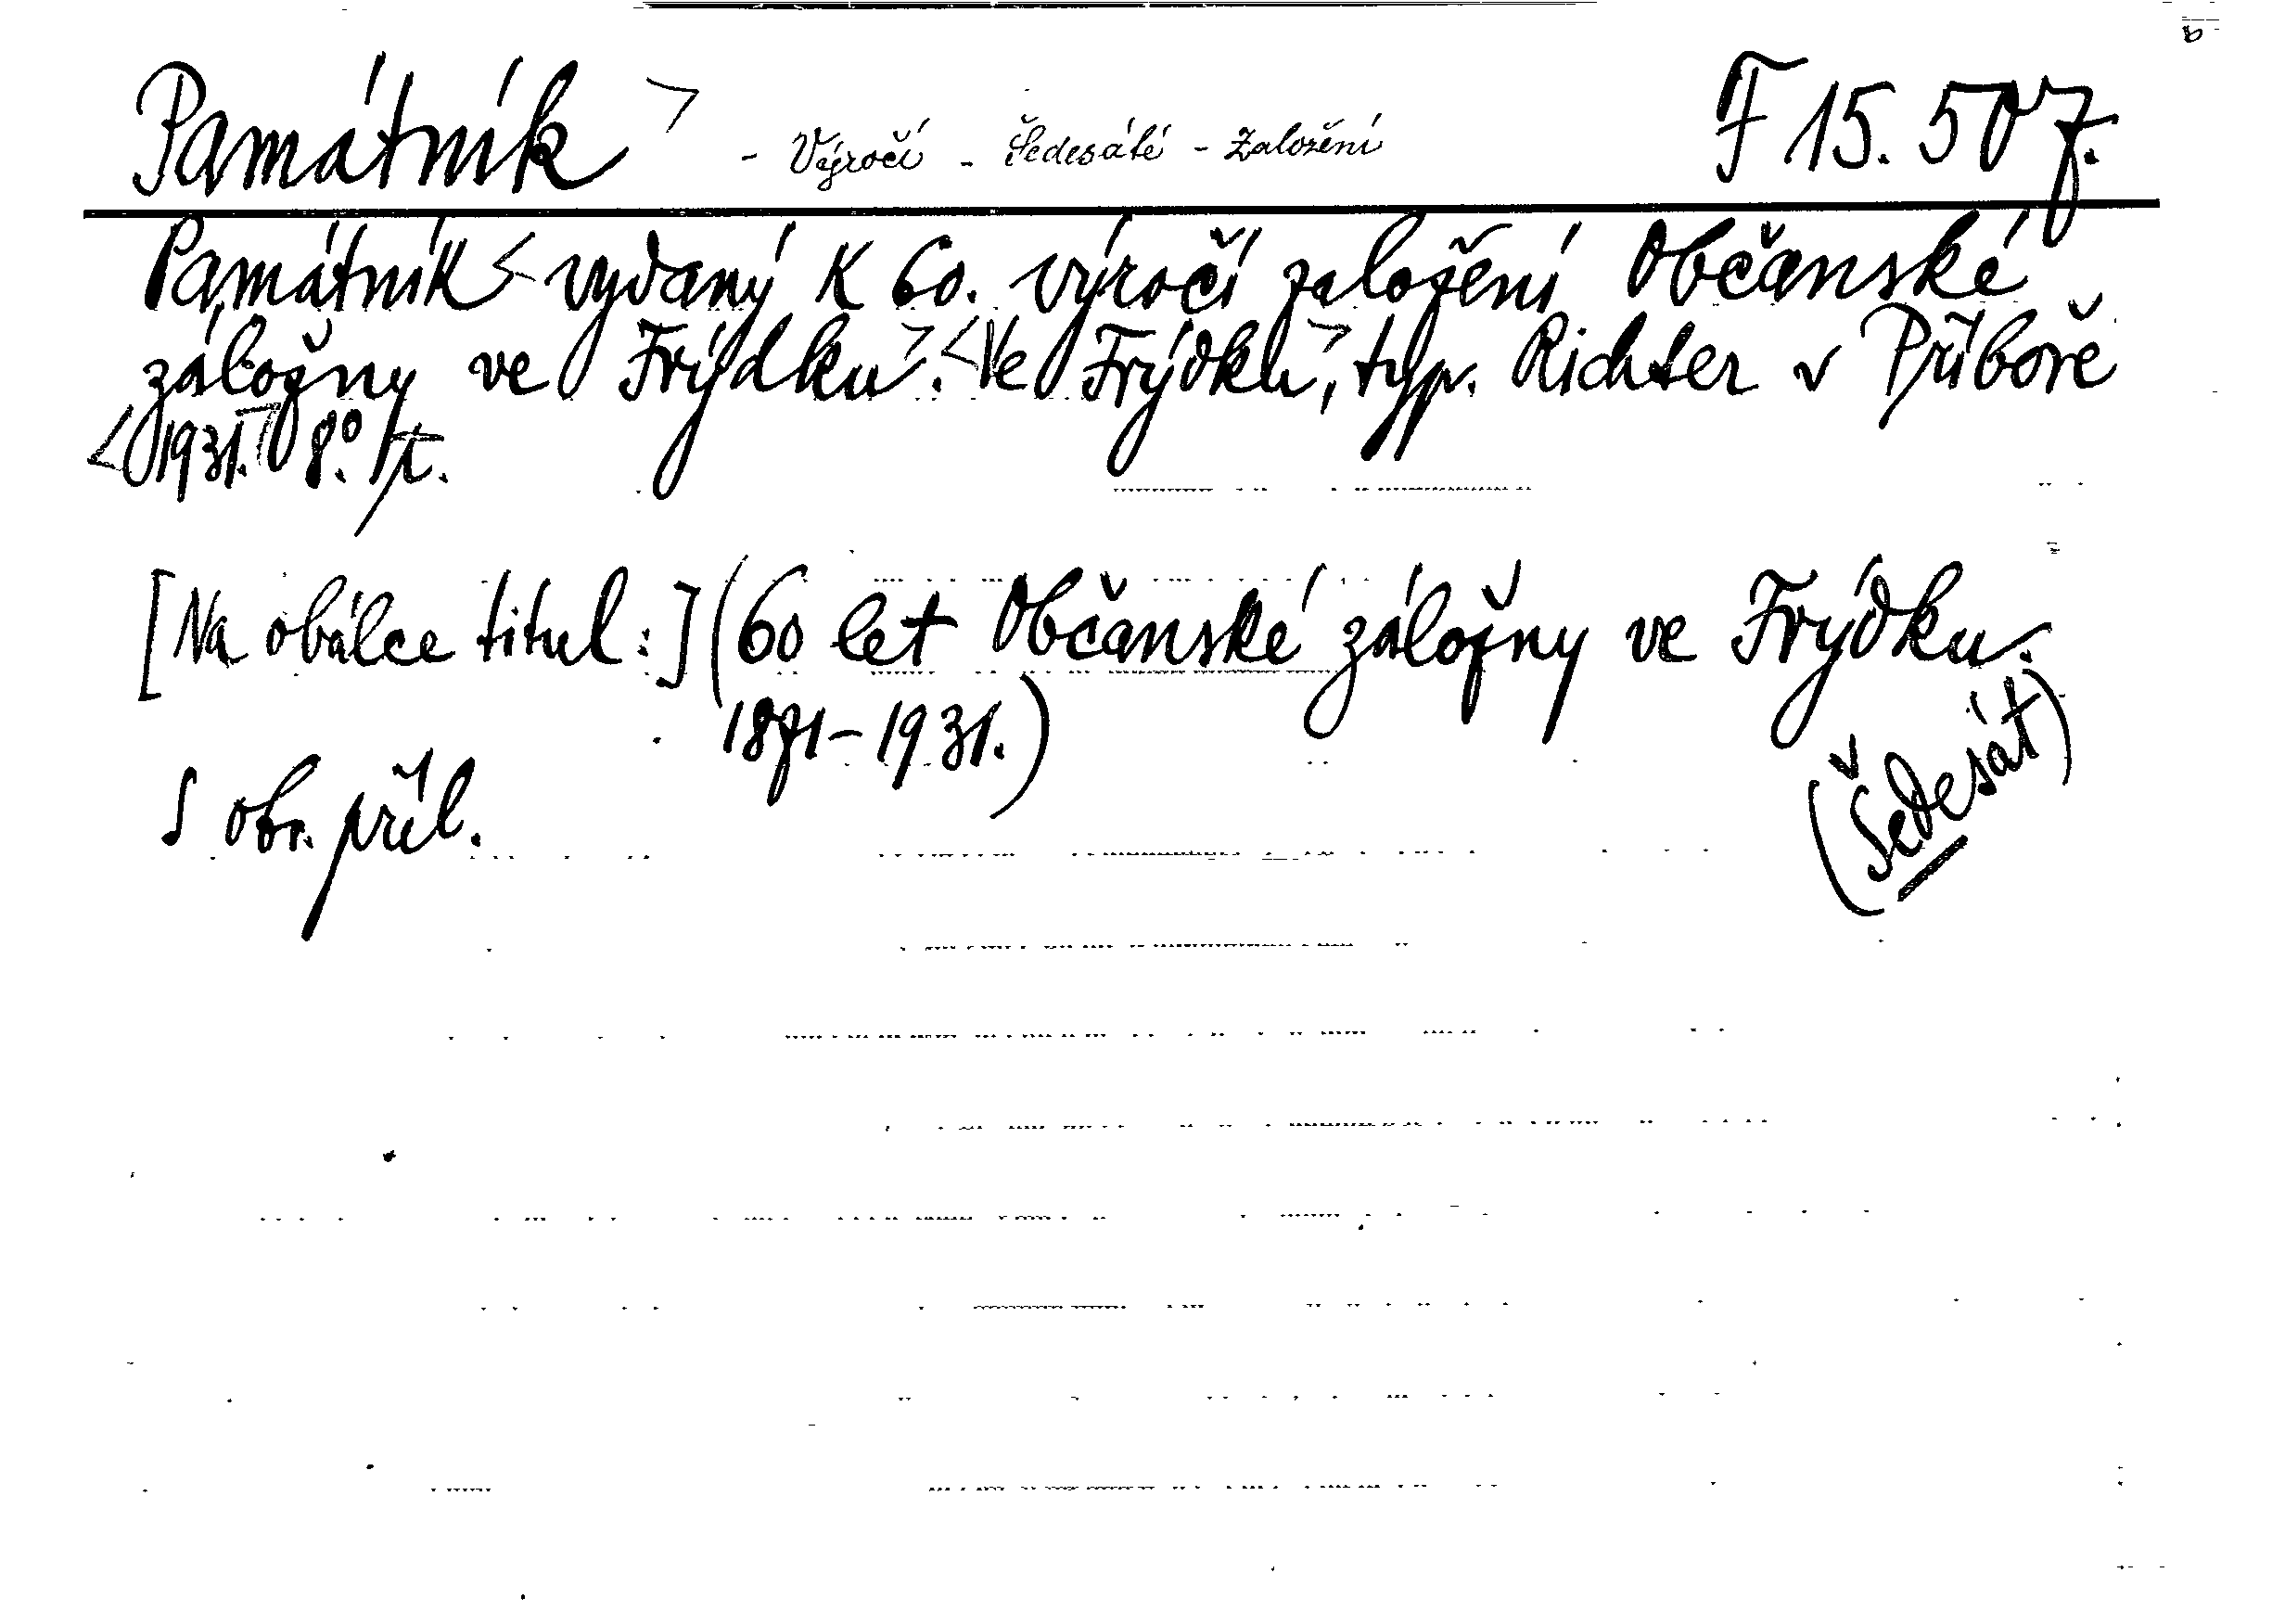 Památník > - Výročí - Šedesáté - Založení F 15.507.
Památník < vydaný k 60. výročí založení Občanské
záložny ve Frýdku >. < Ve Frýdku >, typ. Richter v Příboře
< 1931. > 8°. /t.
[Na obálce titul:] (60 let Občanské záložny ve Frýdku.
1871-1931.)
(Šedesát)
S obr. příl.